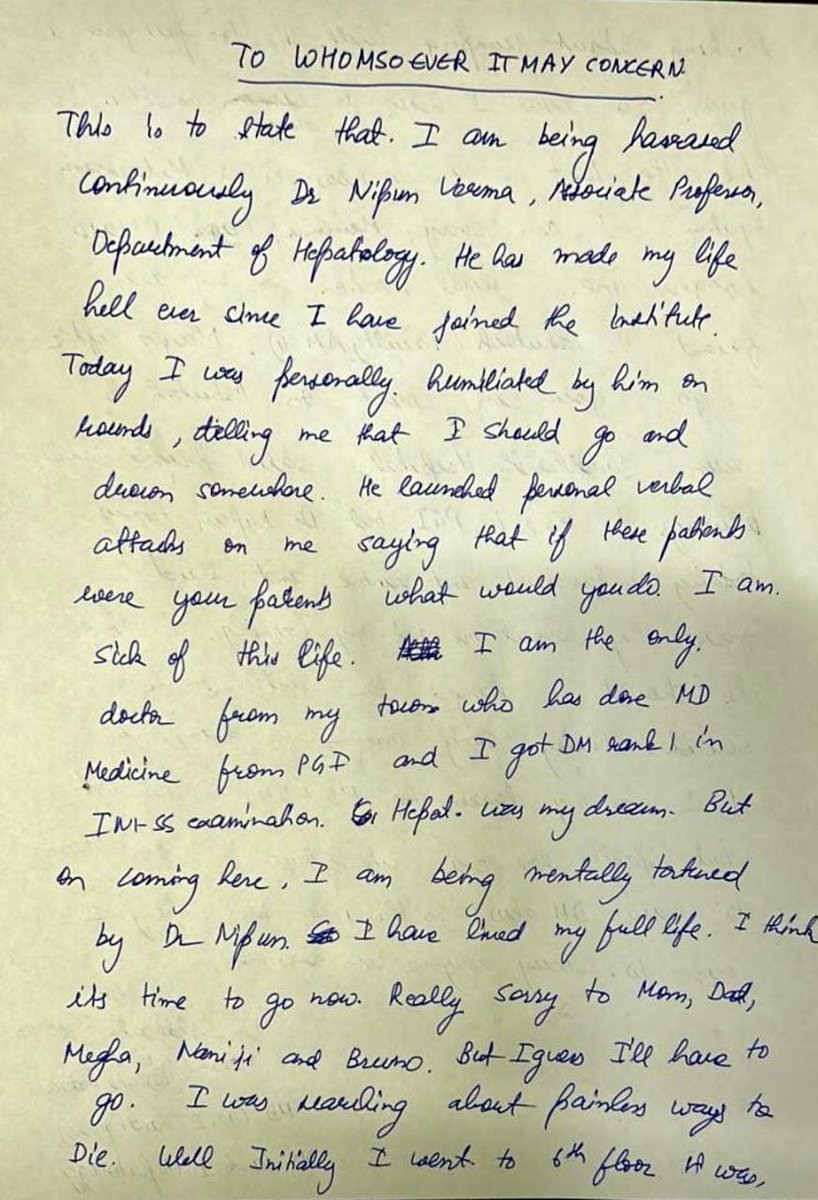 TO WHOMSOEVER IT MAY CONCERN.
This is to state that. I am being harrased
continuously Dr Nipun Verma, Associate Professor,
Department of Hepatology. He has made my life
hell ever since I have joined the Institute.
Today I was personally. humiliated by him on
rounds, telling me that I should go and
drown somewhere. He launched personal verbal
attacks on me saying that if these patients
were your patients what would you do. I am.
sick of this life. I am the only.
doctor from my town who has done MD
Medicine from PGI and I got DM rank 1 in
INI-SS examination. Hepat. was my dream. But
on coming here, I am being mentally tortured
by Dr Nipun. I have lived my full life. I think
its time to go now. Really sorry to Mom, Dad,
Megha, Naniji and Bruno. But I guess I'll have to
go. I was reading about painless ways to
Die. Well Initially I went to 6th floor it was,